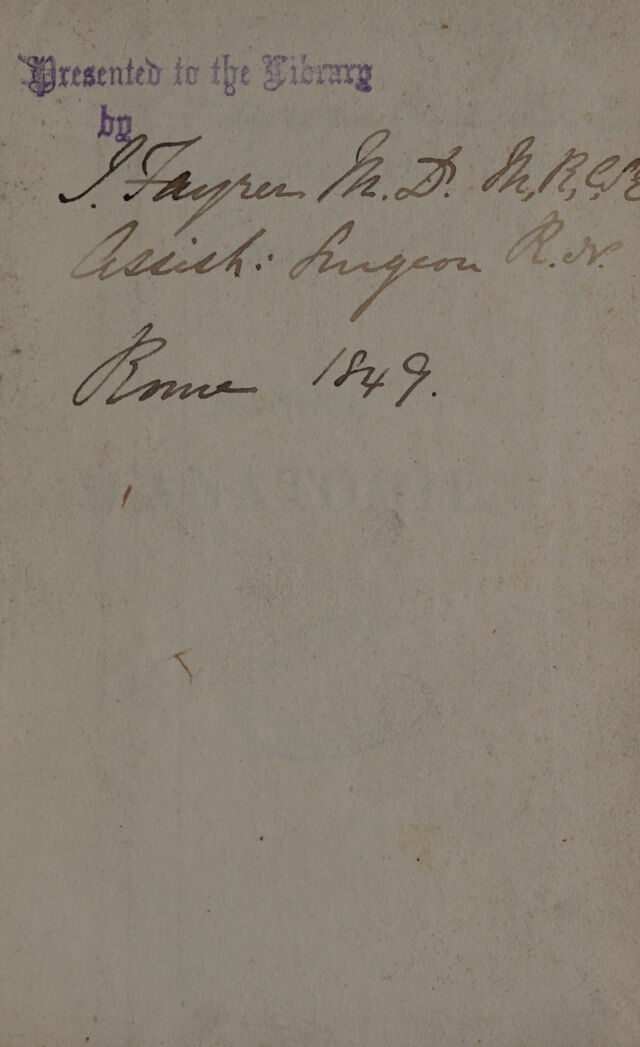 Presented to the Library
by
J. Fayrer M.D. M.R.C.S
Assist: Surgeon R.N.
Rome 1849.